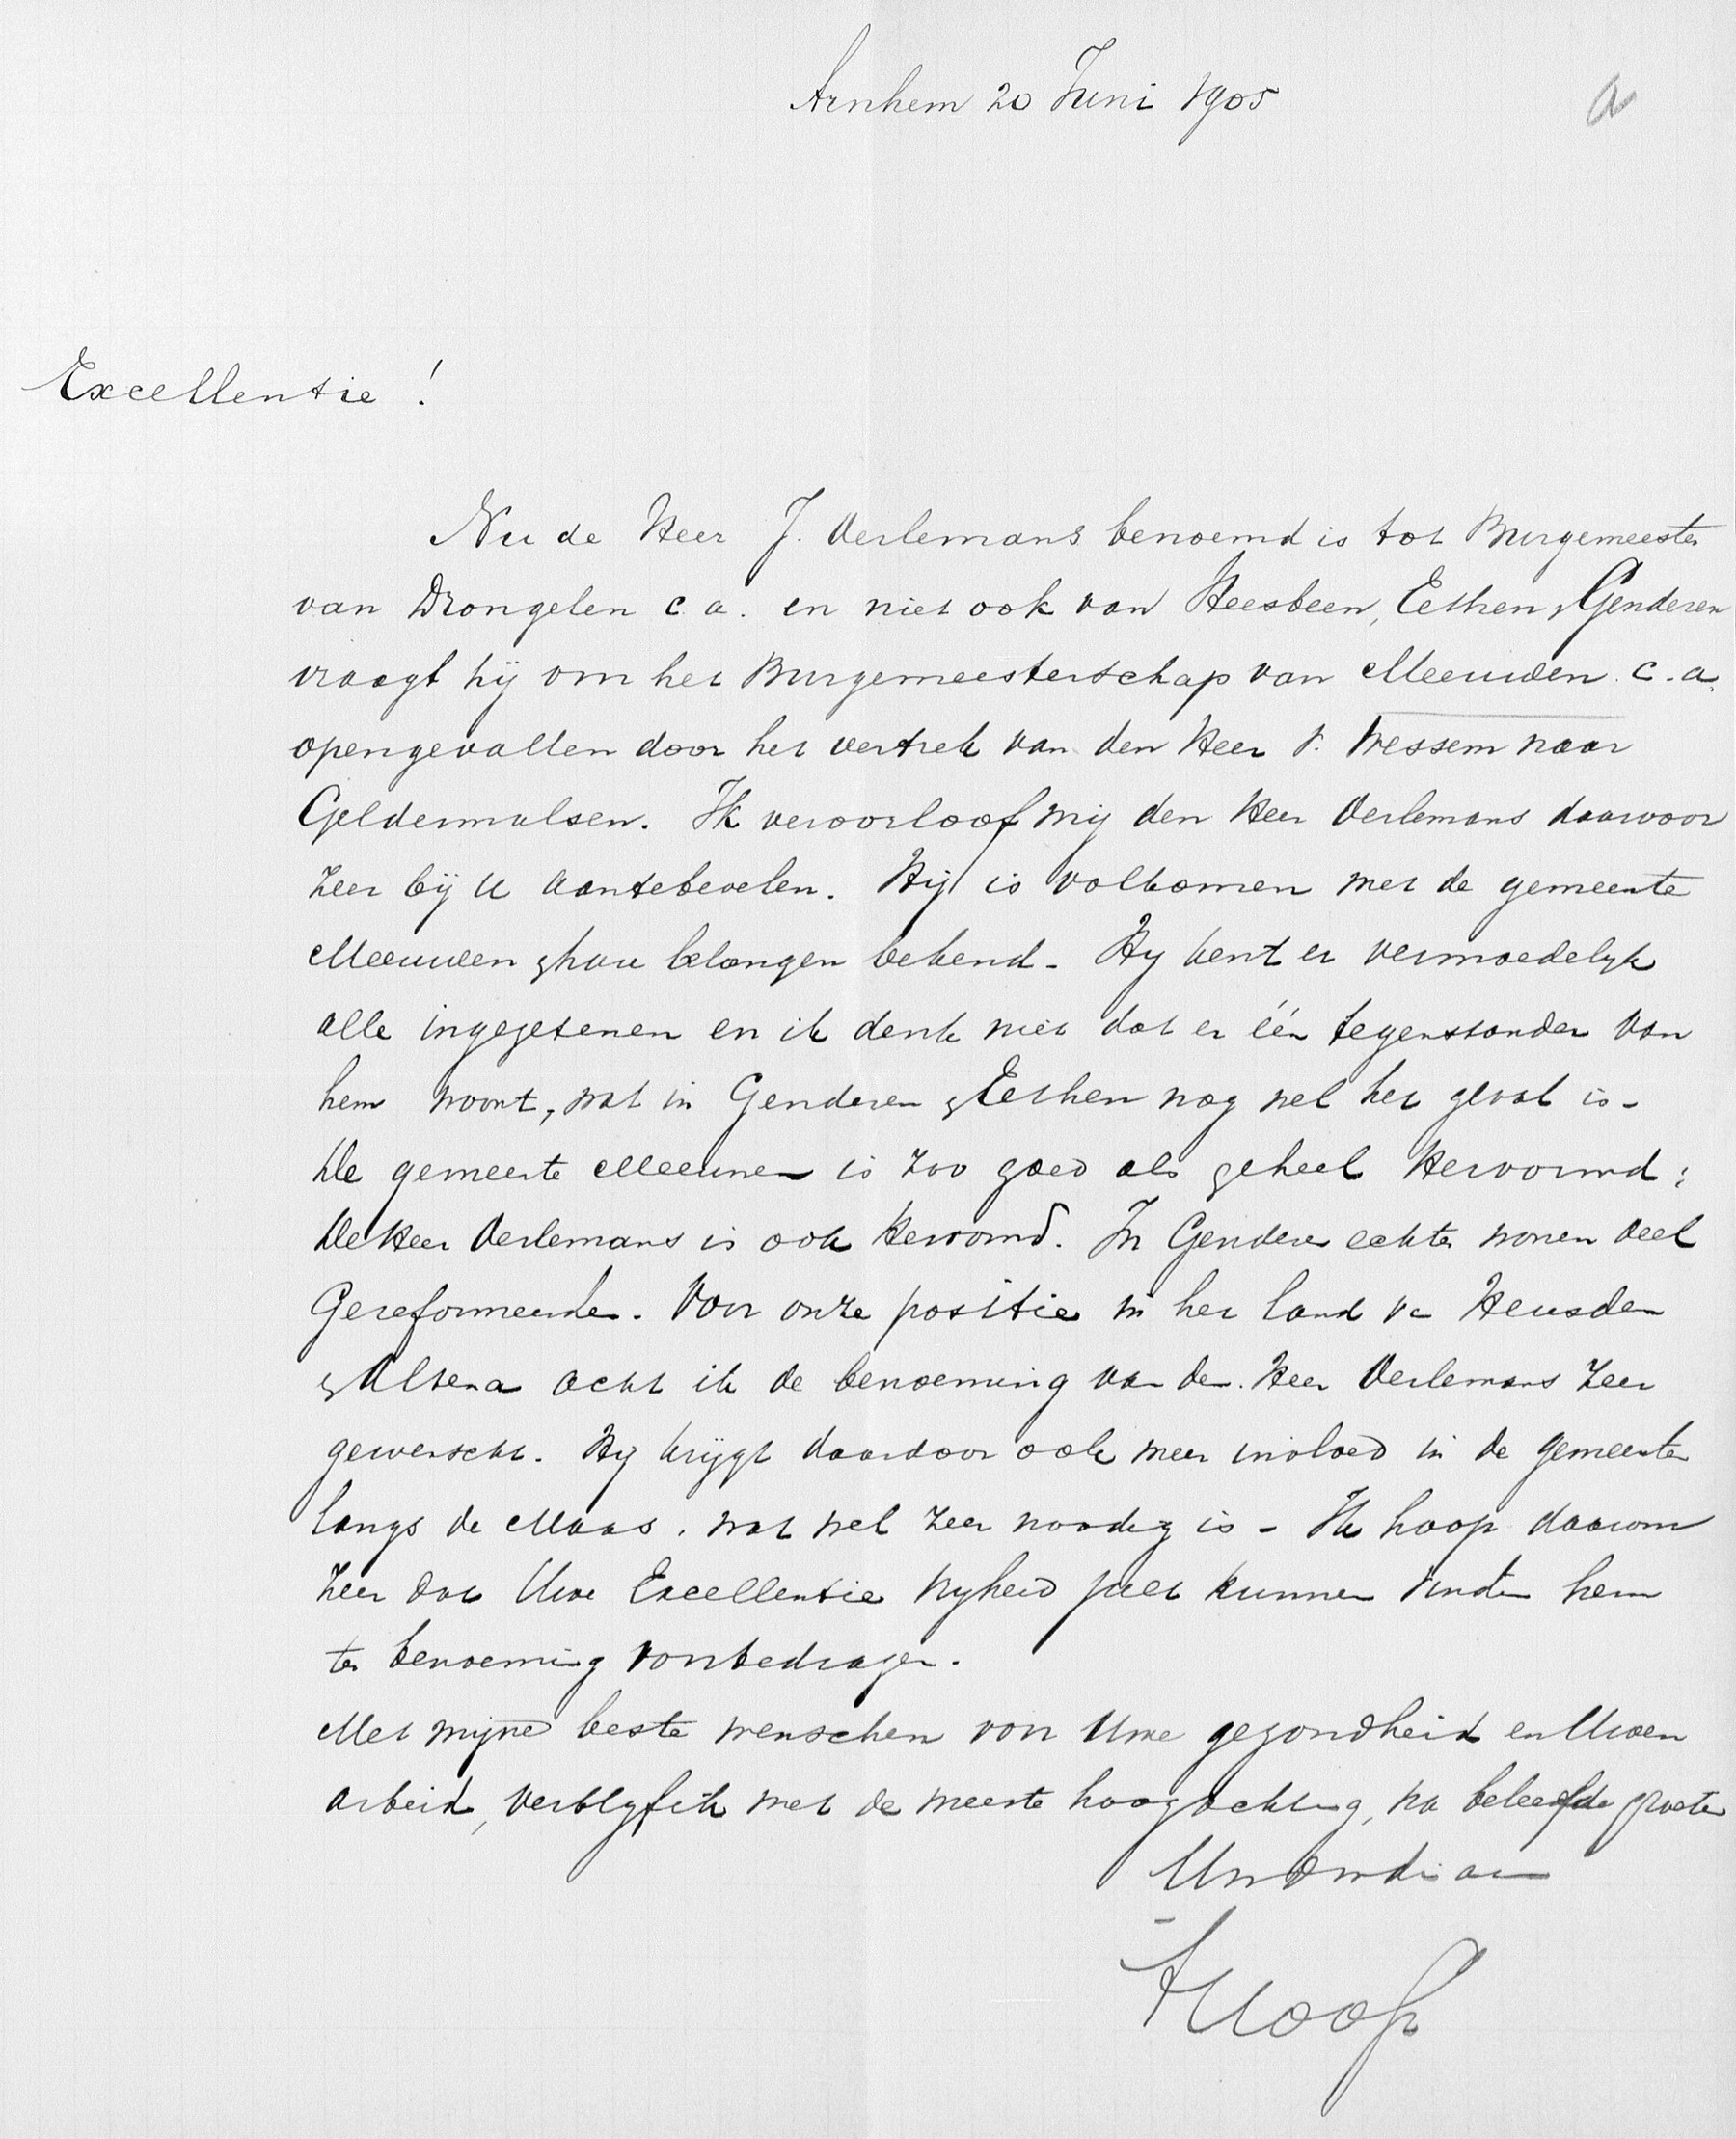 Arnhem 20 Juni 1905
a
Excellentie!
Nu de Heer J. Verlemans benoemd is tot Burgemeester
van Drongelen c.a. en niet ook van Heesbeen, Eethen & Genderen
vraagt hij om het Burgemeesterschap van Meeuwen c.a.
opengevallen door het vertrek van den Heer v. Wessem naar
Geldermalsen. Ik veroorloof mij den Heer Verlemans daarvoor
zeer bij U aantebevelen. Hij is volkomen met de gemeente
Meeuwen & hun belangen bekend - Hij kent er vermoedelijk
alle ingezetenen en ik denk niet dat er één tegenstander van
hem woont, wat in Genderen & Eethen nog wel het geval is -
De gemeente Meeuwen is zoo goed als geheel Hervormd;
De Heer Verlemans is ook Hervormd. In Genderen echter wonen veel
Gereformeerden. Voor onze positie in het land v. Heusden
& Altena acht ik de benoeming van den Heer Verlemans zeer
gewenscht. Hij krijgt daardoor ook meer invloed in de gemeenten
langs de Maas, wat wel zeer noodig is - Ik hoop daarom
zeer dat Uwe Excellentie vrijheid zult kunnen vinden hem
ter benoeming voortedragen.
Met mijne beste wenschen voor Uwe gezondheid en Uwen
arbeid, verblijf ik met de meeste hoogachting, na beleefde groeten
Uw dw dienaar